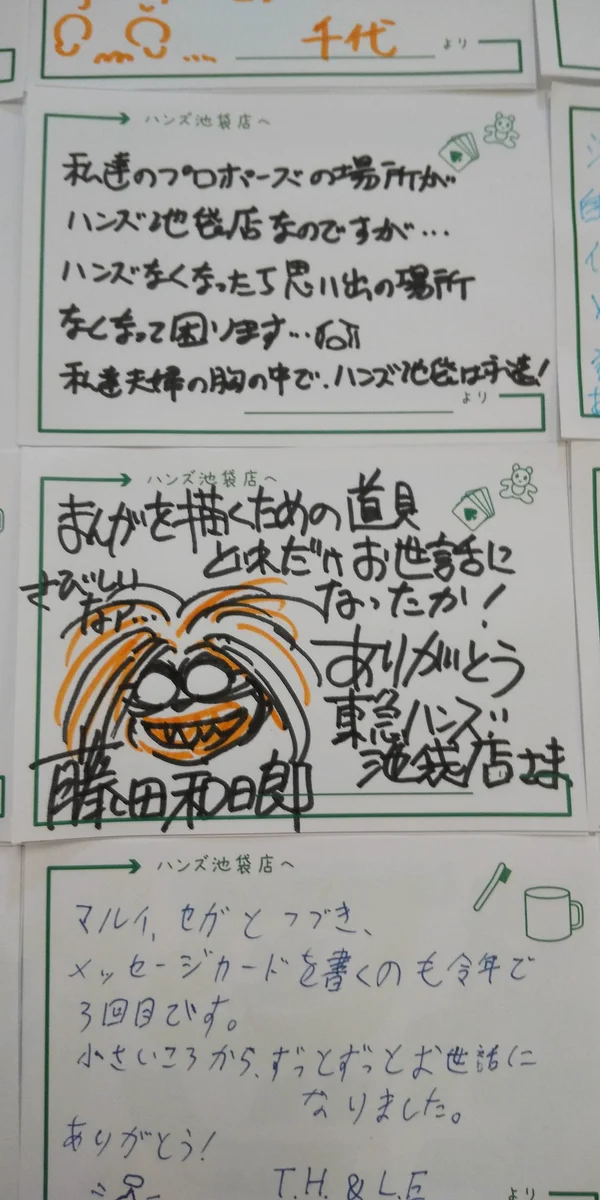 千代
より
ハンズ池袋店へ
私達のプロポーズの場所が
ハンズ池袋店なのですが…
ハンズなくなったら思い出の場所
なくなって困ります…
私達夫婦の胸の中で、ハンズ池袋は永遠!
より
ハンズ池袋店へ
まんがを描くための道具
どれだけお世話に
なったか!
さびしい
なァ…
ありがとう
東急ハンズ
池袋店さま
藤田和日郎
ハンズ池袋店へ
マルイ、セガとつづき、
メッセージカードを書くのも今年で
3回目です。
小さいころから、ずっとずっとお世話に
なりました。
ありがとう!
T.H. & L.E
より